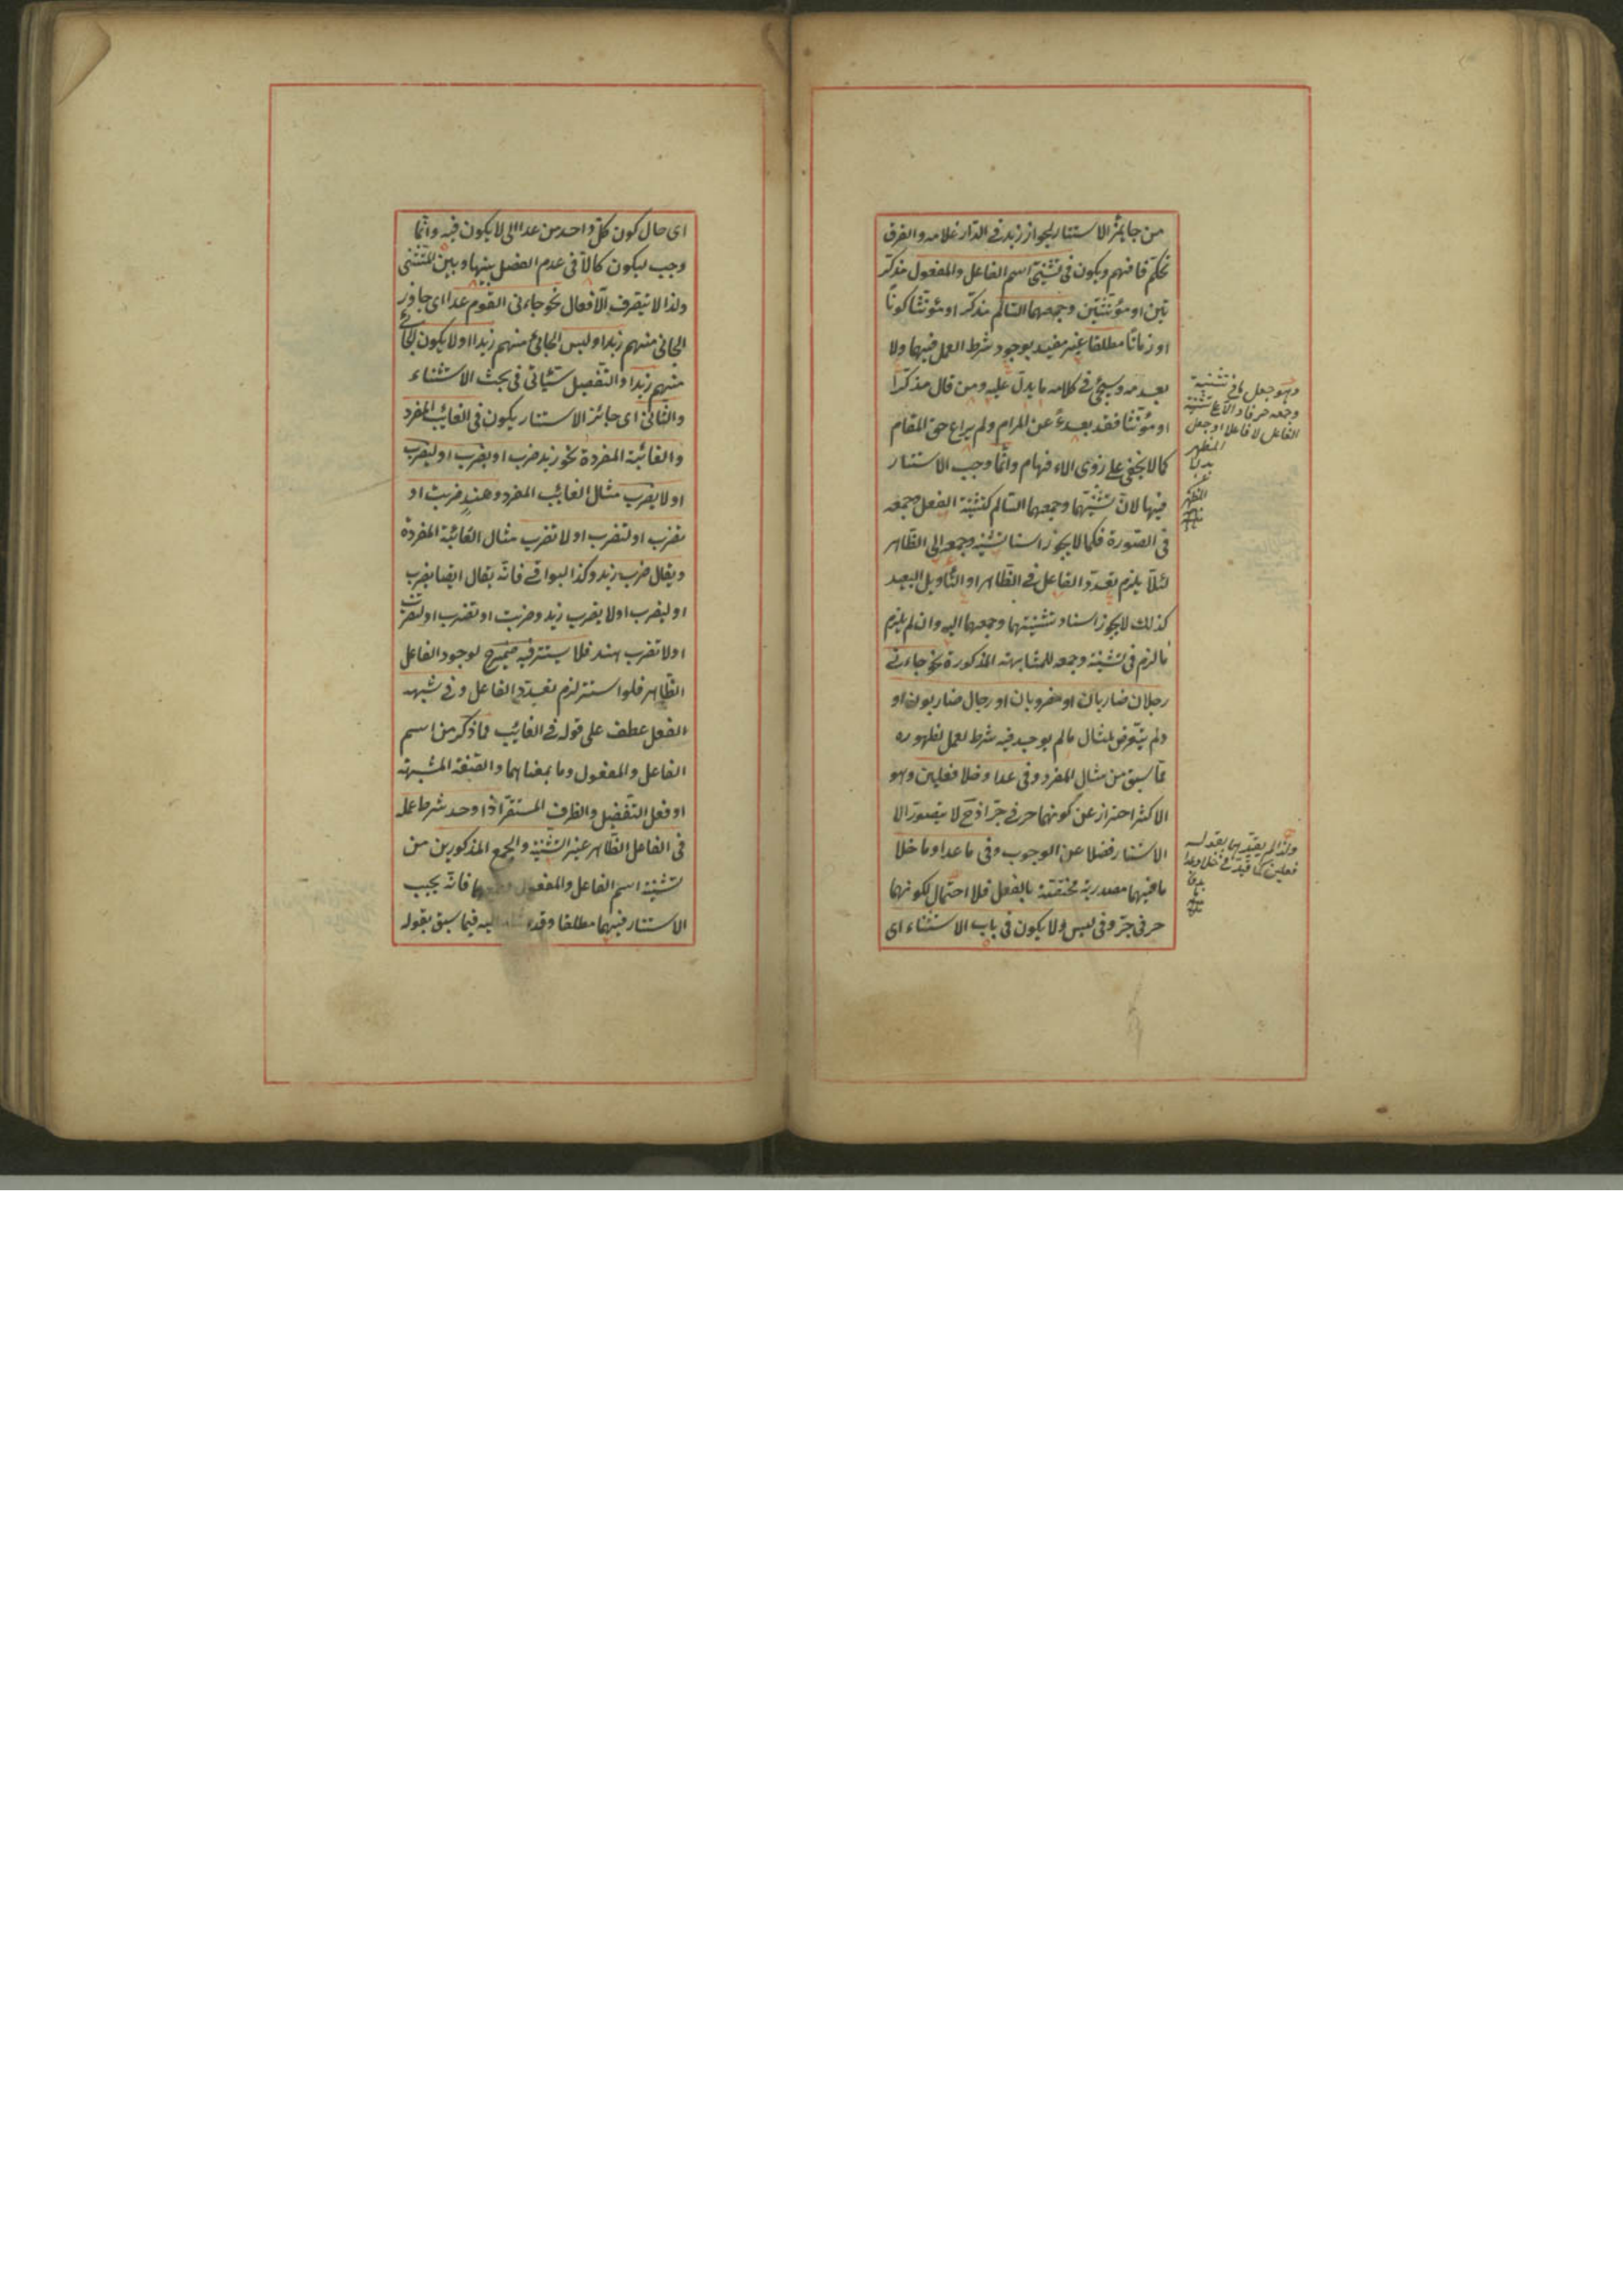 من جايز الاستتار لجواز زيد فى الدار غلامه والفرق
تحكم فافهم ويكون فى تثنيتى اسم الفاعل والمفعول مذكر
تين او مؤنثتين وجمعهما السالم مذكرا او مؤنثا كونا
او زمانا مطلقا غير مقيد بوجود شرط العمل فيهما ولا
بعدمه وسيجئ فى كلامه ما يدل عليه ومن قال مذكرا
او مؤنثا فقد بعد عن المرام ولم يراع حق المقام
كما لا يخفى على ذوى الافهام وانما وجب الاستتار
فيها لان تثنيتهما وجمعهما السالم كتثنية الفعل وجمعه
فى الصورة فكما لا يجوز اسناد تثنيته وجمعه الى الظاهر
لئلا يلزم تعدد الفاعل فى الظاهر او التأويل البعيد
كذلك لا يجوز اسناد تثنيتهما وجمعهما اليه وان لم يلزم
ما لزم فى تثنيته وجمعه للمشابهة المذكورة نحو جاءنى
رجلان ضاربان او مضروبان او رجال ضاربون او
ولم يتعرض لمثال ما لم يوجد فيه شرط العمل لظهوره
مما سبق من مثال المفرد وفى عدا وخلا فعلين وهو
الاكثر احتراز عن كونهما حرفى جر اذ ح لا يتصور الا
الاستتار فضلا عن الوجوب وفى ما عدا وما خلا
ما فيهما مصدرية مختصة بالفعل فلا احتمال لكونهما
حرفى جر وفى ليس ولا يكون فى باب الاستثناء اى
وهو جعل ما فى تثنية
وجمعه حرفا دالا على تثنية
الفاعل لا فاعلا او جعل
المظهر
بدلا
ولذا لم يقيدهما بقوله
فعلين كما قيد فى خلا وعدا
اى حال كون كل واحد من عدا الى لا يكون فيه وانما
وجب ليكون كالا فى عدم الفصل بينها وبين المستثنى
ولذا لا يتصرف الافعال نحو جاءنى القوم عدا اى جاوز
الجائى منهم زيدا وليس الجائى منهم زيدا او لا يكون الجائى
منهم زيدا والتفصيل سيأتى فى بحث الاستثناء
والثانى اى جائز الاستتار يكون فى الغائب المفرد
والغائبة المفردة نحو زيد ضرب او يضرب او ليضرب
او لا يضرب مثال الغائب المفرد وهند ضربت او
تضرب او لتضرب او لا تضرب مثال الغائبة المفردة
ويقال ضرب زيد وكذا البواقى فانه يقال ايضا يضرب
او ليضرب او لا يضرب زيد وضربت او تضرب او لتضرب
او لا تضرب هند فلا يستتر فيه ضمير ح لوجود الفاعل
الظاهر فلو استتر لزم تعدد الفاعل وفى شبه
الفعل عطف على قوله فى الغائب مما ذكر من اسم
الفاعل والمفعول وما بمعناهما والصفة المشبهة
او فعل التفضيل والظرف المستقر اذا وجد شرط عمله
فى الفاعل الظاهر غير التثنية والجمع المذكورين من
تثنية اسم الفاعل والمفعول وجمعهما فانه يجب
الاستتار فيهما مطلقا وقد اليه فيما سبق بقوله